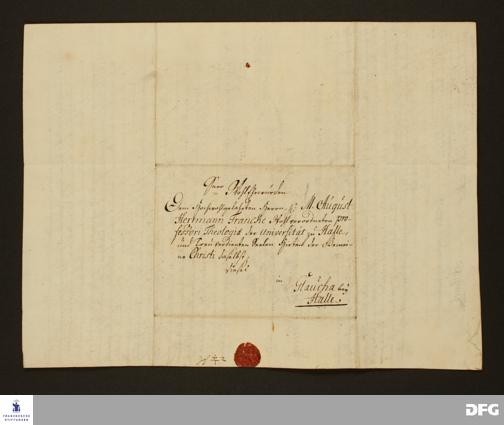 Dem Hochwohlgelahrten Herrn, H. M. August
Herrmann Francke Wohlverordneten pro-
fessori Theologiæ der universität zu Halle,
und Treuverdienten Seelen Hirten der Gemei-
ne Christi daselbst
in Glaucha bey
Halle.
FRANCKESCHE
STIFTUNGEN
DFG